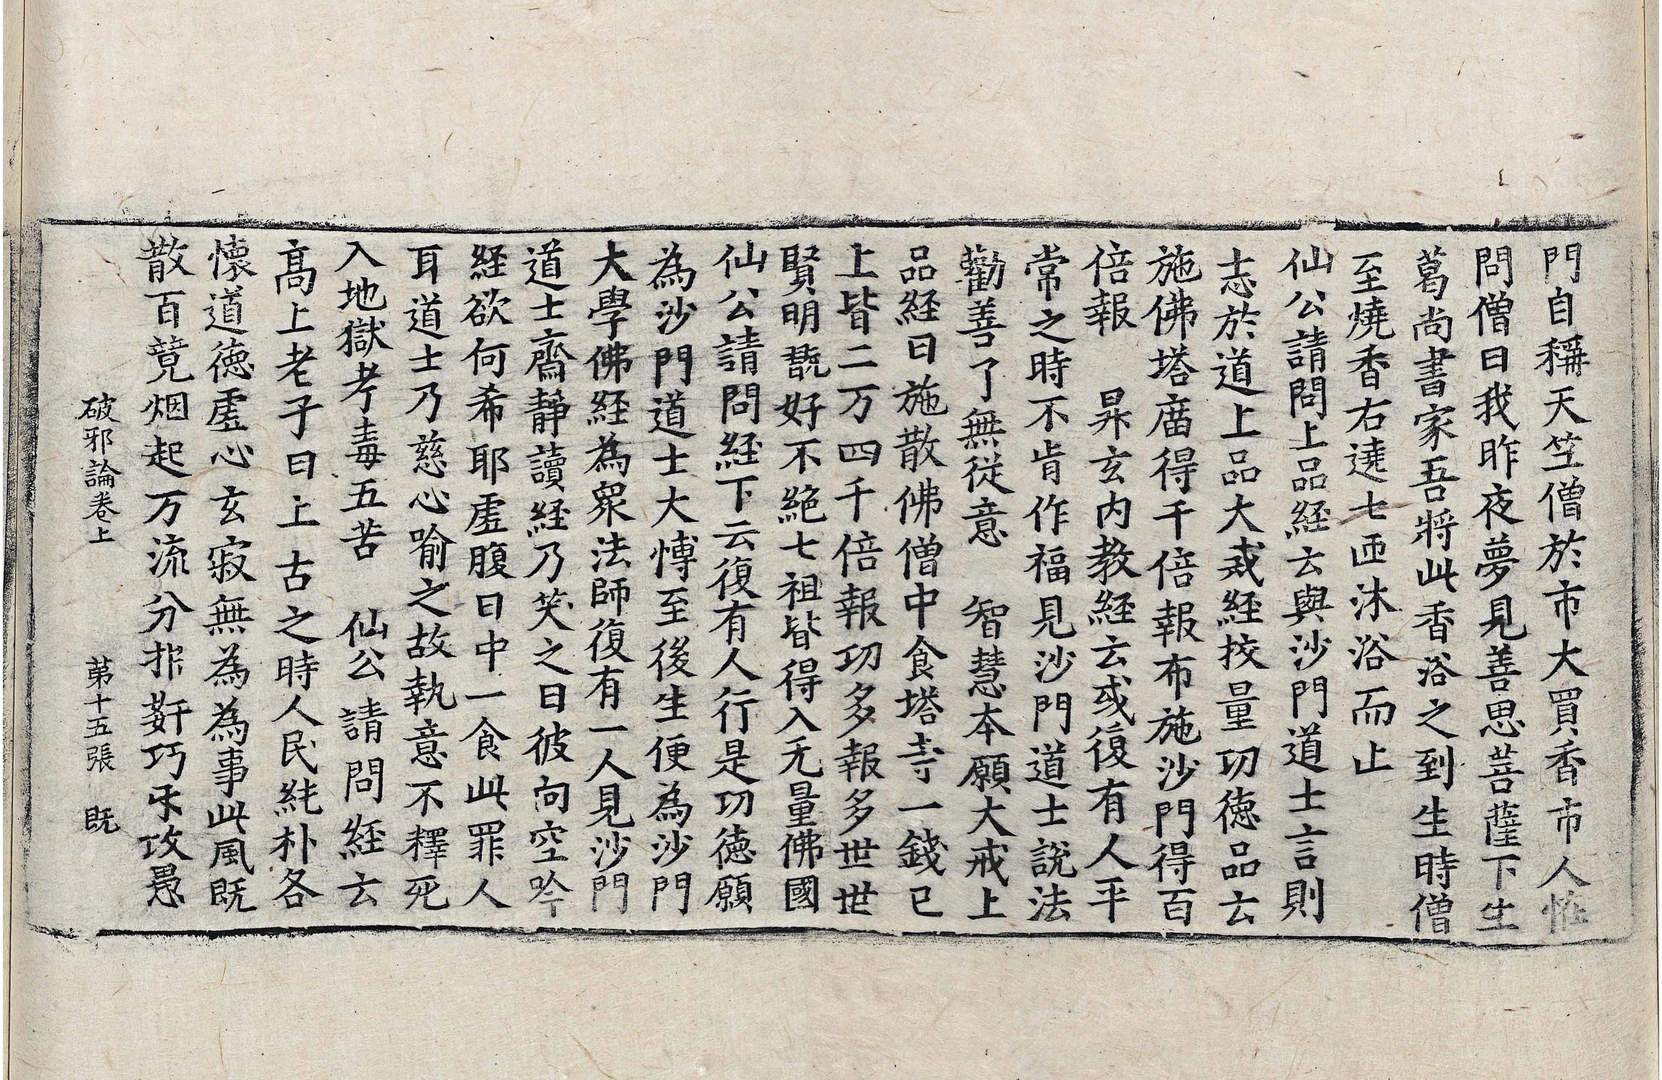 門自稱天竺僧於市大買香市人恠
問僧曰我昨夜夢見善思菩薩下生
葛尚書家吾將此香浴之到生時僧
至燒香右遶七迊沐浴而止
仙公請問上品經云與沙門道士言則
志於道上品大戒經挍量功德品云
施佛塔廟得千倍報布施沙門得百
倍報　昇玄內教經云或復有人平
常之時不肯作福見沙門道士說法
勸善了無從意　智慧本願大戒上
品經曰施散佛僧中食塔寺一錢已
上皆二万四千倍報功多報多世世
賢明翫好不絕七祖皆得入无量佛國
仙公請問經下云復有人行是功德願
為沙門道士大慱至後生便為沙門
大學佛經為衆法師復有一人見沙門
道士齋靜讀經乃笑之曰彼向空吟
經欲何希耶虛腹日中一食此罪人
耳道士乃慈心喻之故執意不釋死
入地獄考毒五苦　仙公請問經云
高上老子曰上古之時人民純朴各
懷道德虛心玄寂無為為事此風旣
散百競烟起万流分㧗姧巧牙攻愚
破邪論卷上　第十五張　既